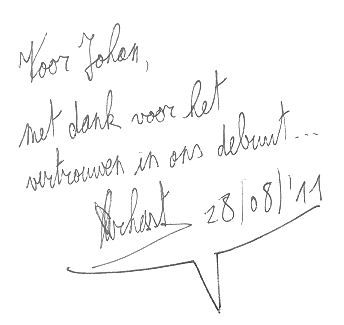 Voor Johan,
met dank voor het
vertrouwen in ons debuut...
28/08/'11